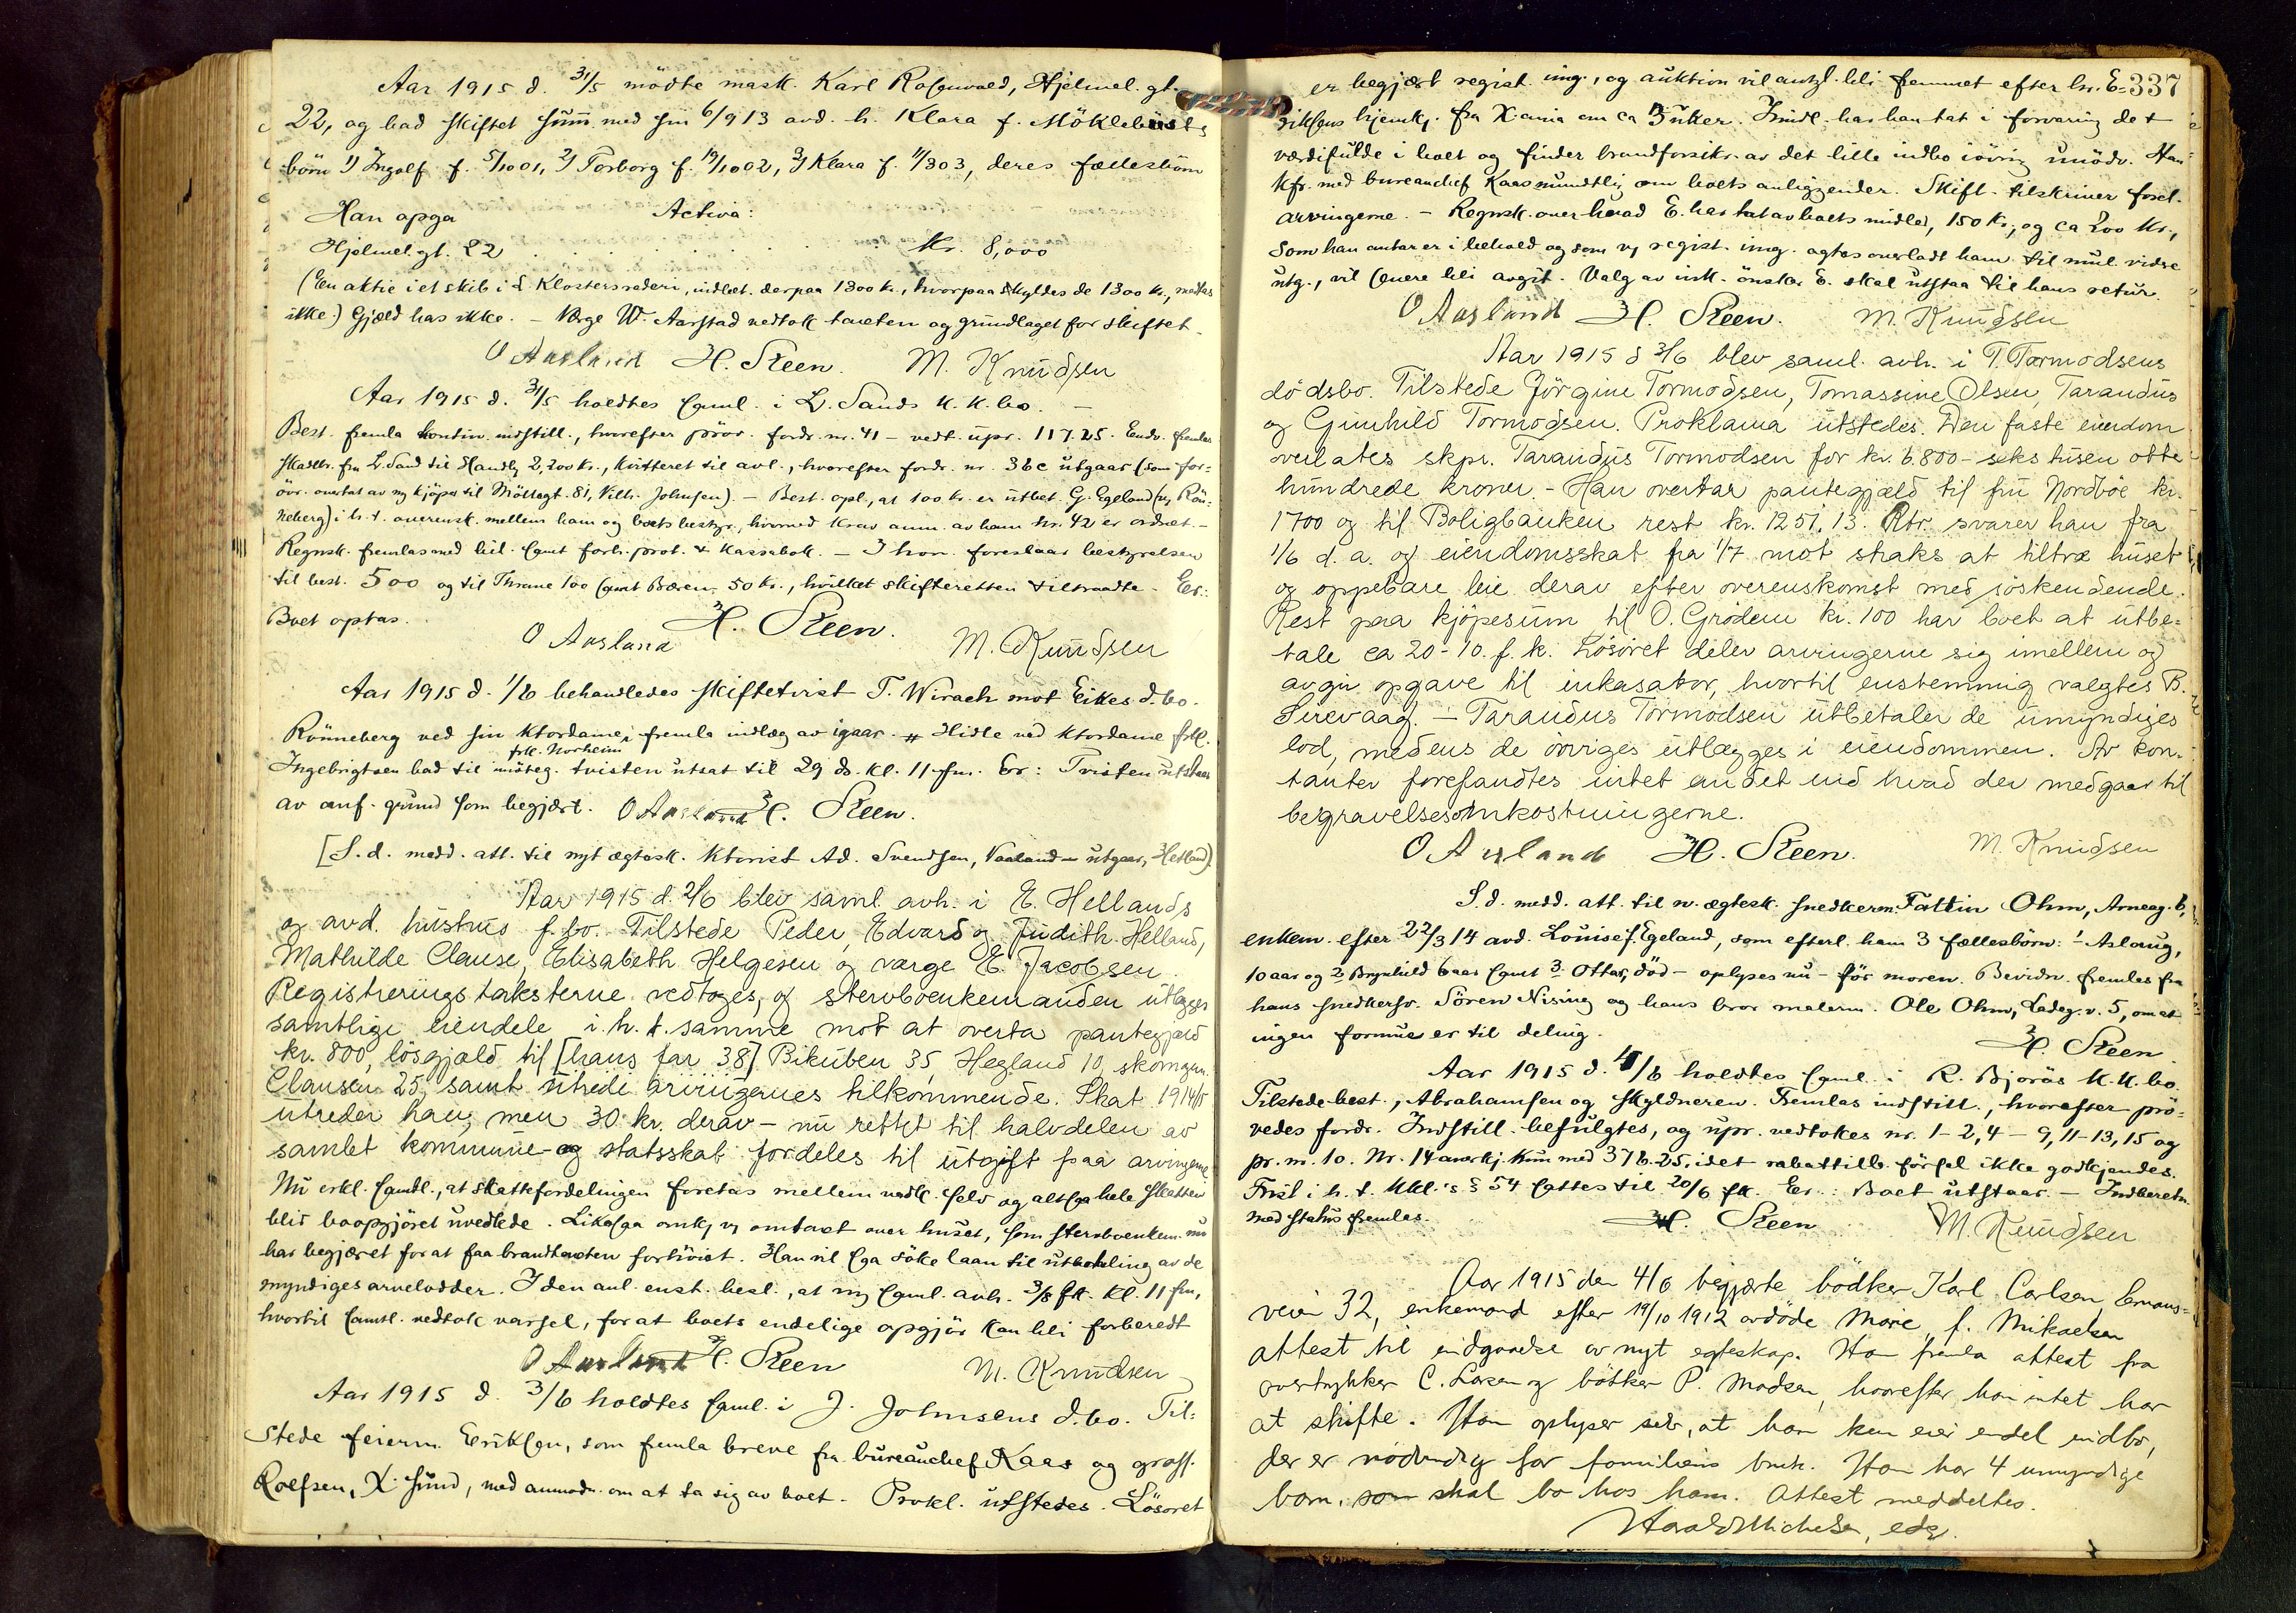 Aar 1915 d. 31/5 mödte mask. Karl Rosenvold, Hjelmel. gt.
22, og bad skiftet sum. med sin 6/9 13 avd. h. Klara f. Möklebust's
börn 1) Ingolf f. 5/10 01, 2) Torborg f. 19/10 02, 3) Klara f. 11/3 03, deres fællesbörn
Han opga Activa:
Hjelmel. gt. 22 . . . . . . kr. 8,000
(En aktie i et skib i S. Klosters rederi, indbet. derpaa 1300 kr., hvorpaa skyldes de 1300 kr., medtas
ikke.) Gjæld has ikke. – Verge W. Aarstad vedtok taxten og grundlaget for skiftet.
O Ausland H. Steen. M. Knudsen
Aar 1915 d. 31/5 holdtes saml. i L. Sands K. K. bo. –
Best. fremla kontin. indstill., hvorefter pröv. fordr. nr. 41 – vedt. upr. 117.25. Endv. fremla
skadbr. fra L. Sand til Handly 2,200 kr., kvitteret til avl., hvorefter fordr. nr. 36 c utgaar (som for-
övr. overtat av ny kjöper til Möllegt. 81, Vilh. Johnsen) – Best. opl., at 100 kr. er utbet. G. Egeland (v. Rön-
neberg) i h. t. overensk. mellem ham og boets bestyr., hvormed krav anm. av ham nr. 42 er ordnet. –
Regnsk. fremlas med bil. samt forh. prot. & kassabok. – I hon. foreslaar bestyrelsen
til best. 500 og til Thrane 100 samt Bæren 50 kr., hvilket skifteretten tiltraadte. Er.:
Boet optas.
O Ausland H. Steen. M. Knudsen
Aar 1915 d. 1/6 behandledes skiftetvist T. Wirach mot Eikes d. bo.
Rönneberg ved sin ktordame fremla indlæg av igaar. # Hidle ved ktordame frk.
frk. Norheim
Ingebrigtsen bad til imöteg. tvisten utsat til 29 ds. kl. 11 fm. Er: Tvisten utstaar
av anf. grund som begjært. O Ausland H. Steen.
[S. d. medd. att. til nyt ægtesk. ktorist Ad. Svendsen, Vaaland – utgaar, Hetland]
Aar 1915 d. 2/6 blev saml. avh. i E. Hellands
og avd. hustrus f. bo. Tilstede Peder, Edvard og Judith Helland,
Mathilde Clause, Elisabeth Helgesen og værge E. Jacobsen.
Registreringstaksterne vedtoges, og stervboenkemanden utlægges
samtlige eiendele i. h. t. samme mot at overta pantegjæld
kr. 800, lösgjæld til [hans far 38] Bikuben 35, Hegland 10, skomgm.
Clausen 25, samt utrede arvingernes tilkommende. Skat 1914/15
utreder han, men 30 kr. derav – nu rettet til halvdelen av
samlet kommune- og statsskat fordeles til utgift paa arvingerne.
Nu erkl. samtl., at skattefordelingen foretas mellem vedk. selv og altsaa hele skatten
blir boopgjöret uvedkde. Likesaa omkj. v. omtaxt over huset, som stervboenkem. nu
har begjæret for at faa brandtaxten forhöiet. Han vil saa söke laan til utbetaling av de
myndiges arvelodder. I den anl. enst. besl., at ny saml. avh. 3/8 fk. kl. 11 fm.,
hvortil samtl. vedtok varsel, for at boets endelige opgjör kan bli forberedt
O Ausland H. Steen M. Knudsen
Aar 1915 d. 3/6 holdtes saml. i J. Johnsens d. bo. Til-
stede feierm. Eriksen, som fremla breve fra bureauchef Kaas og gross.
Roefsen, X. sund, med anmodn. om at ta sig av boet. Prokl. utstedes. Lösöret
337
er begjært regist. img., og auktion vil antgl. bli fremmet efter hr. E-
riksens hjemkj. fra X.ania om ca 3 uker. Imidl. har han tat i forvaring det
værdifulde i boet og finder brandforsikr. av det lille indbo iövrig unödv. Han
kfr. med bureauchef Kaas mundtlig om boets anliggender. Skift. tilskriver forøt.
arvingerne. – Regnsk. over hvad E. har tat av boets midler, 150 kr., og ca 200 kr.,
som han antar er i behold og som v. regist. img. agtes overladt ham til mul. vidre
utg., vil senere bli avgit. Valg av ink. önsker E. skal utstaa til hans retur.
O Ausland H. Steen. M. Knudsen
Aar 1915 d 3/6 blev saml. avh. i T. Tormodsens
dödsbo. Tilstede Jörgine Tormodsen, Tomassine Olsen, Tarandus
og Gunhild Tormodsen. Proklama utstedes. Den faste eiendom
overlates skpr. Tarandus Tormodsen for kr. 6.800 – seks tusen otte
hundrede kroner. – Han overtar pantegjæld til fru Nordböe kr.
1700 og til Boligbanken rest kr. 1251,13. Rtr. svarer han fra
1/6 d. a. og eiendomsskat fra 1/7 mot straks at tiltræ huset
og oppebære leie derav efter overenskomst med söskendende.
Rest paa kjöpesum til O. Grödem kr. 100 har boet at utbe-
tale ca 20-10. f. k. Lösöret deler arvingerne sig imellem og
avgir opgave til inkasator, hvortil enstemmig valgtes B.
Sirevaag. – Tarandus Tormodsen utbetaler de umyndiges
lod, medens de övriges utlægges i eiendommen. Av kon-
tanter forefandtes intet andet end hvad der medgaar til
begravelsesomkostningerne.
O Ausland H. Steen. M. Knudsen
S. d. medd. att. til n. ægtesk. snedkerm. Fattin Ohm, Arneag. 6,
enkem. efter 22/3 14 avd. Louise f. Egeland, som efterl. ham 3 fællesbörn: 1 Aslaug,
10 aar og 2 Brynhild 6 aar samt 3 Ottar, död – oplyses nu – för moren. Bevidn. fremles fra
hans snedkersv. Sören Nising og hans bror malerm. Ole Ohm, Ladeg. v. 5, om at
ingen formue er til deling.
H. Steen.
Aar 1915 d. 4/6 holdtes saml. i R. Bjoräs K. K. bo.
Tilstede best., Abrahamsen og skyldneren. Fremlas indstill., hvorefter prö-
vedes fordr. Indstill. befulgtes, og upr. vedtokes nr. 1-2, 4-9, 11-13, 15 og
pr. nr. 10. Nr. 14 anerkj. kun med 376.25, idet rabattillb. försel ikke godkjendes.
Frist i h. t. Kkl.'s § 54 sattes til 20/6 fk. Er.: Boet utstaar. – Indberetn.
med status fremlas. H. Steen M. Knudsen
Aar 1915 den 4/6 begjærte bödker Karl Carlsen, Emaus-
veien 32, enkemand efter 19/10 1912 avdöde Marie f. Mikaelsen
attest til indgaaelse av nyt egteskap. Han fremla attest fra
overtrykker C. Larsen og bötker P. Madsen, hvorefter han intet har
at skifte. Han oplyser selv, at han kun eier endel indbo,
der er nödvendig for familiens bruk. Han har 4 umyndige
barn, som skal bo hos ham. Attest meddeltes.
Harald Michelsen, eds.